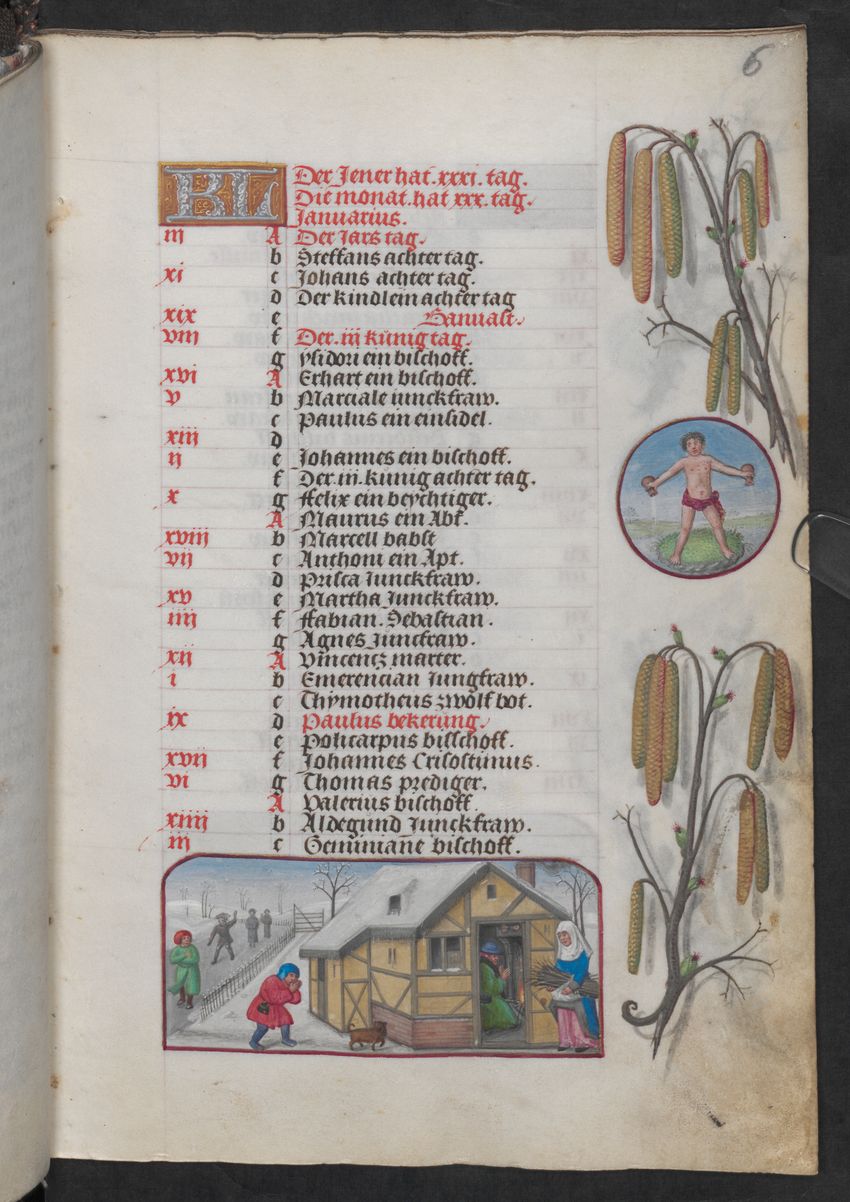 6
KL Der Jener hat .xxxi. tag.
Die monat. hat xxx. tag.
Januarius.
iij A Der Jars tag.
b Steffans achter tag.
xi c Johans achter tag.
d Der kindlein achter tag
xix e
viij f Der .iij künig tag.
g ysidori ein bischoff.
xvi A Erhart ein bischoff.
v b Marciale iunckfraw.
c Paulus ein einsidel.
xiij d
ij e Johannes ein bischoff.
f Der .iij. künig achter tag.
x g ffelix ein beychtiger.
A Maurus ein Abt.
xviij b Marcell babst
vij c Anthoni ein Apt.
d Prisca Junckfraw.
xv e Martha Junckfraw.
iiij f ffabian. Sebastian.
g Agnes Juncfraw.
xij A Vincencz marter.
i b Emerencian Jungfraw.
c Thymotheus zwölf bot.
ix d Paulus bekerung.
e Policarpus bisschoff.
xvij f Johannes Crisostimus.
vi g Thomas prediger.
A Valerius bischoff
xiiij b Aldegund Junckfraw.
iij c Geminiane bischoff.